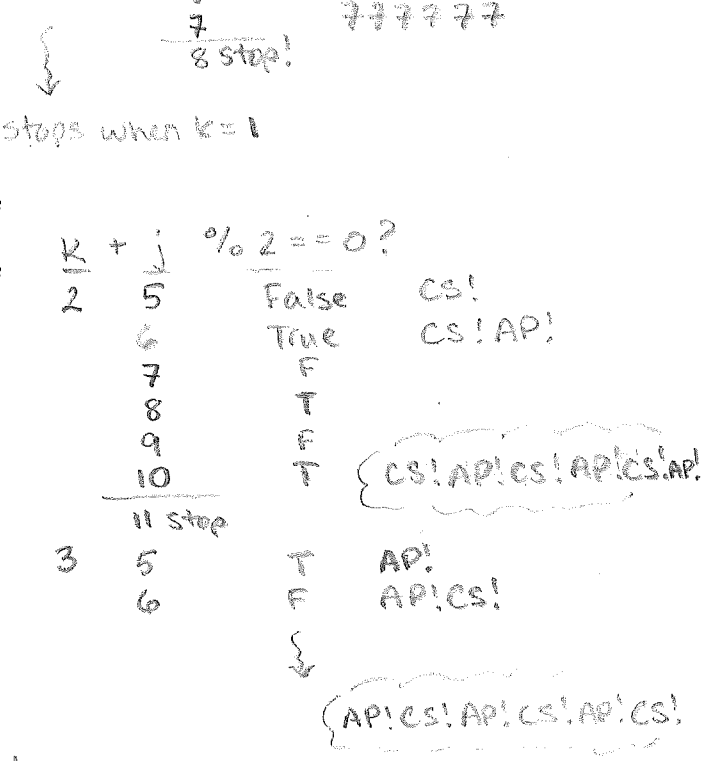 7 777777
8 stop!
stops when k=1
K + j % 2 == 0?
2 5 False CS!
6 True CS!AP!
7 F
8 T
9 F
10 T CS!AP!CS!AP!CS!AP!
11 stop
3 5 T AP!
6 F AP!CS!
AP!CS!AP!CS!AP!CS!